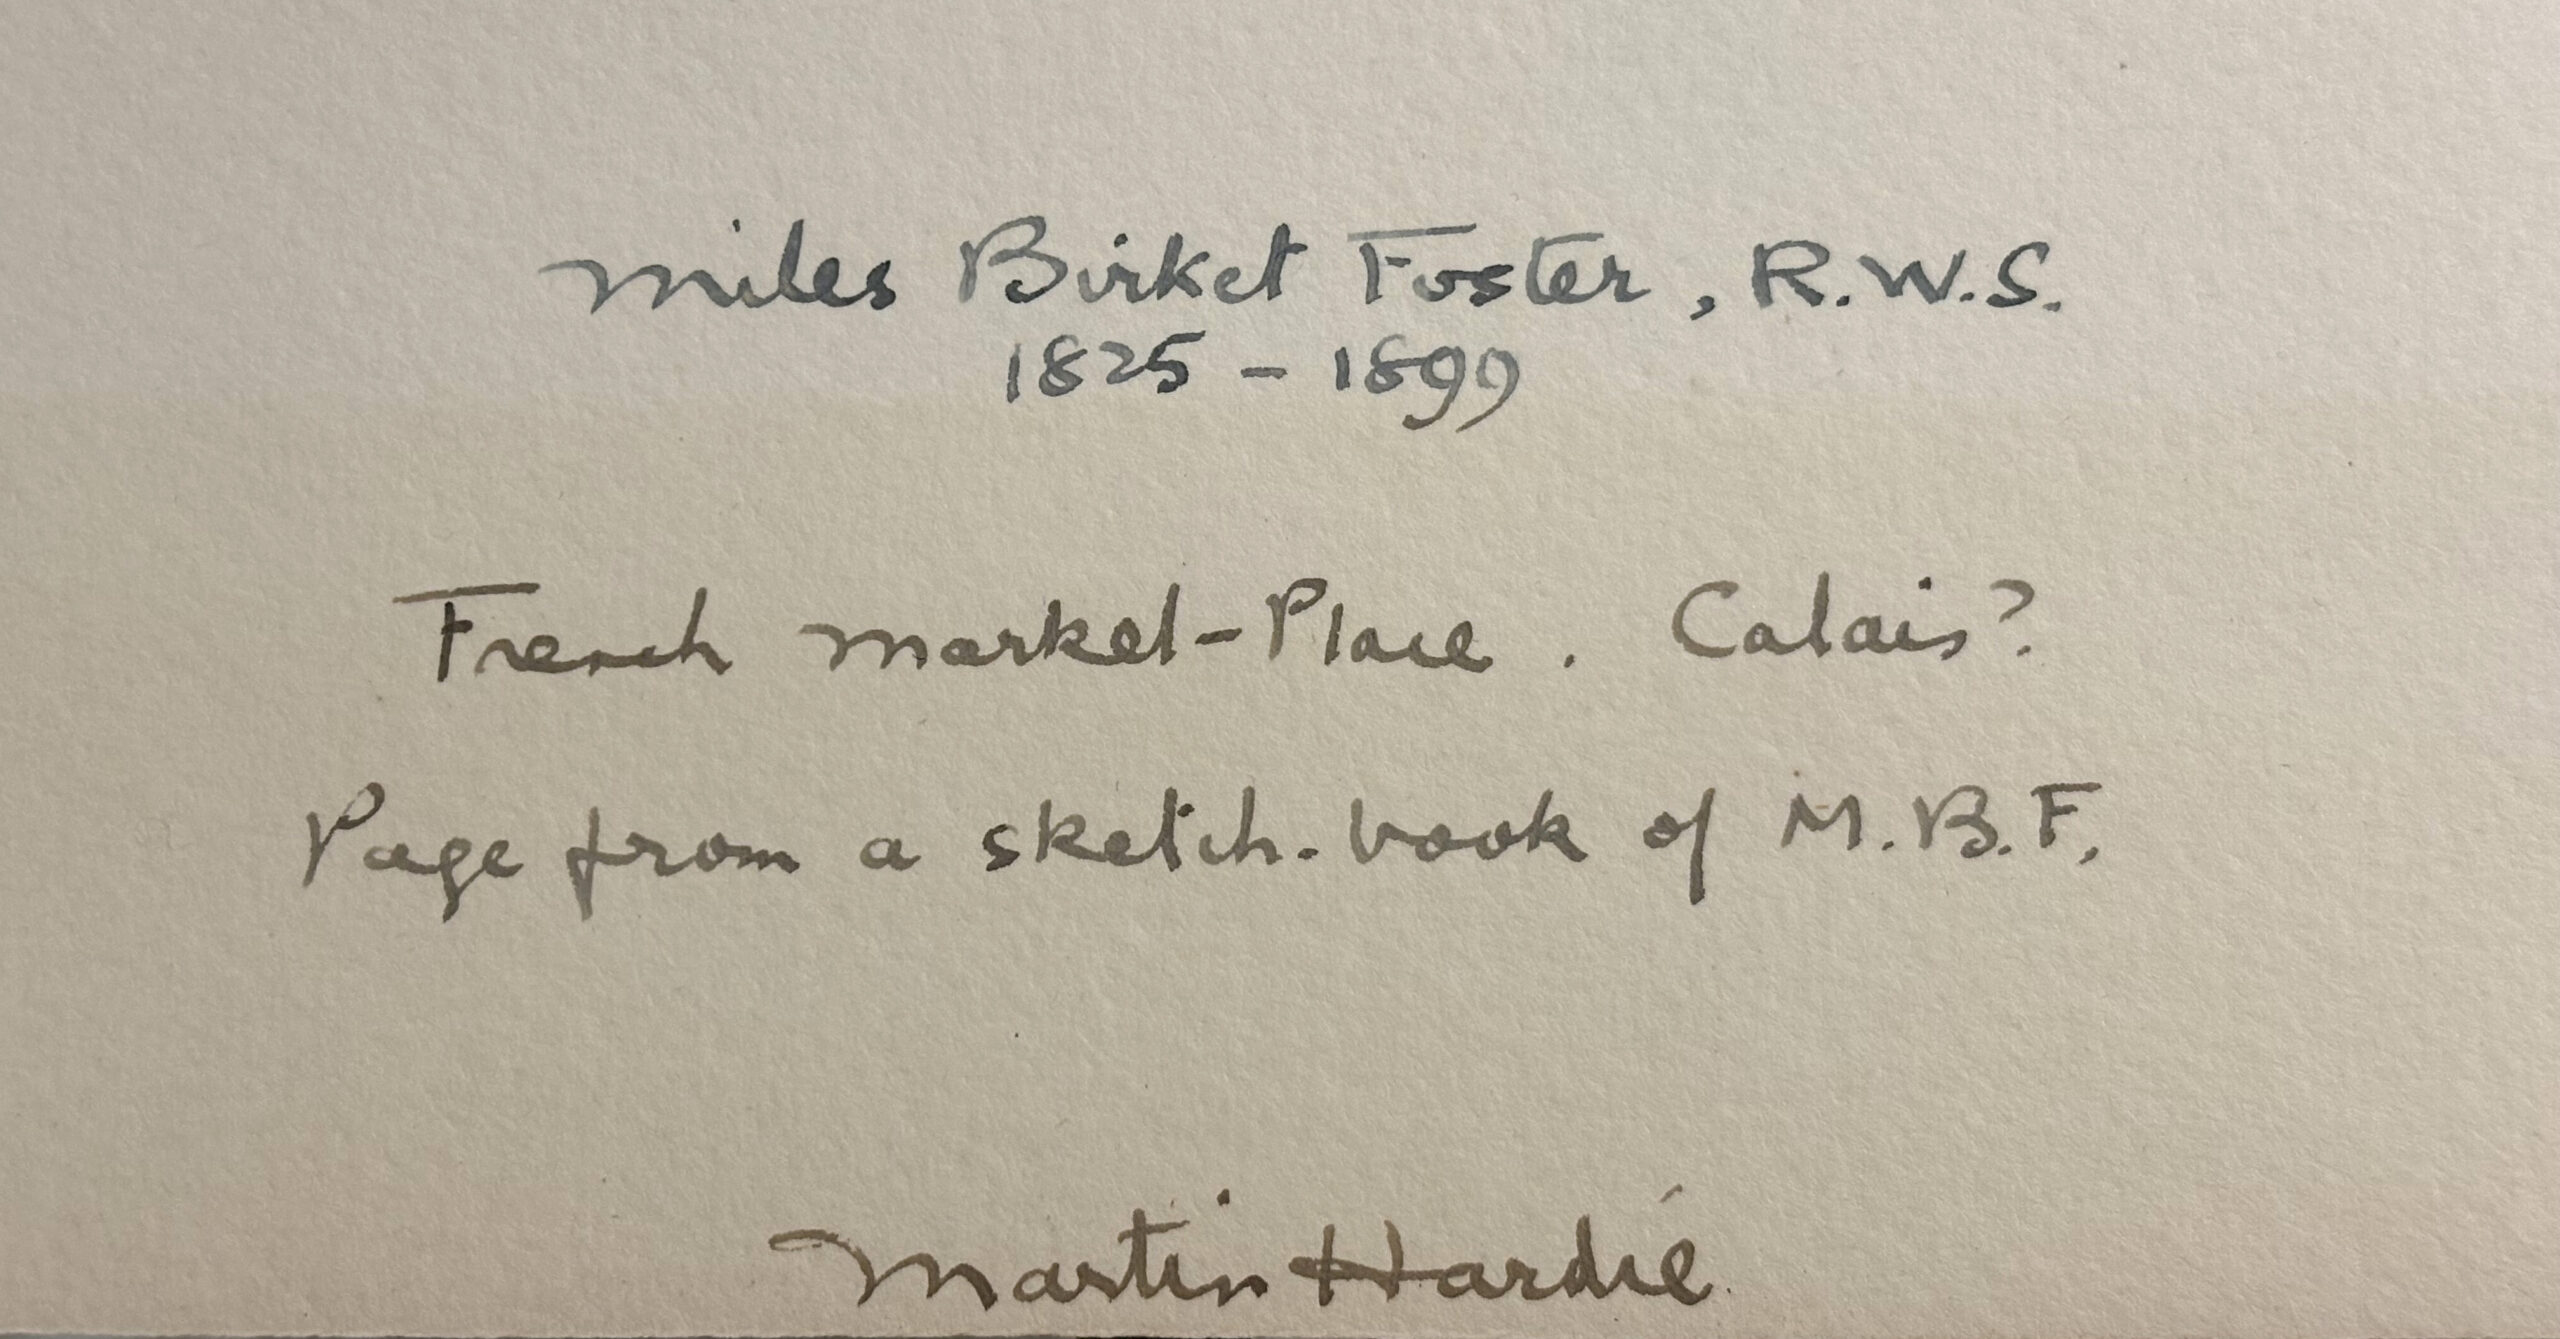 Miles Birket Foster, R.W.S.
1825 - 1899
French Market-Place. Calais?
Page from a sketch-book of M.B.F.
Martin Hardie